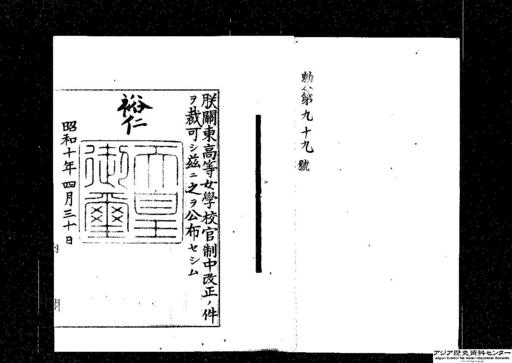 勅令第九十九號
朕關東高等女學校官制中改正ノ件
ヲ裁可シ茲ニ之ヲ公布セシム
裕仁
天皇
御璽
昭和十年四月三十日
アジア歴史資料センター
Japan Center for Asian Historical Records